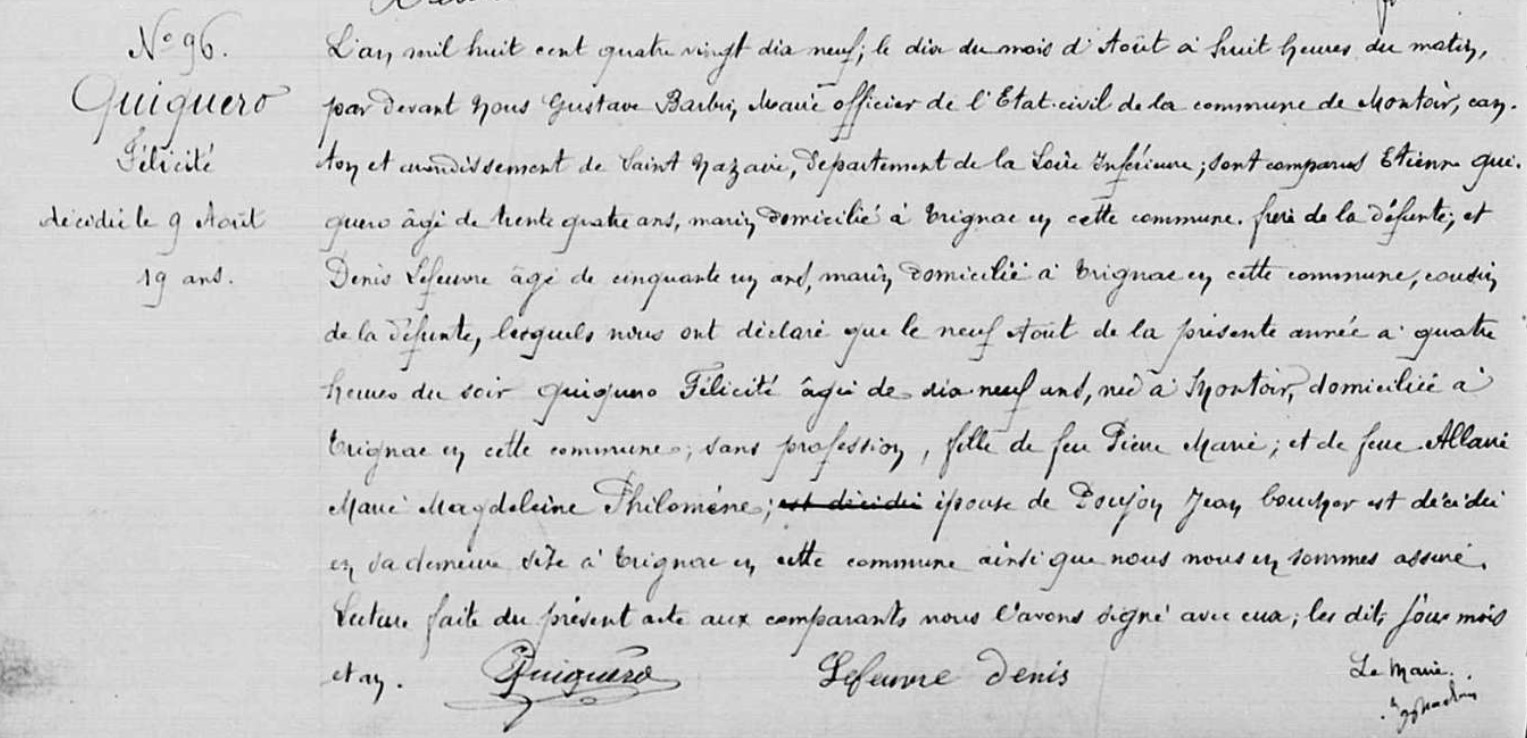 N° 96.
Quiquero
Félicité
décédée le 9 Août
19 ans.
L'an mil huit cent quatre vingt dix neuf; le dix du mois d'Août à huit heures du matin,
par devant Nous Gustave Barbin, Maire officier de l'Etat-civil de la commune de Montoir, can-
ton et arrondissement de Saint Nazaire, département de la Loire Inférieure; sont comparus Etienne Qui-
quero âgé de trente quatre ans, marin, domicilié à Trignac en cette commune. frère de la défunte; et
Denis Lefeuvre âgé de cinquante un ans, marin domicilié à Trignac en cette commune, cousin
de la défunte, lesquels nous ont déclaré que le neuf Août de la présente année à quatre
heures du soir Quiquero Félicité âgée de dix-neuf ans, née à Montoir, domiciliée à
Trignac en cette commune; sans profession, fille de feu Pierre Marie; et de feue Allaire
Marie Magdeleine Philomène; est décédée épouse de Poujon Jean boucher est décédée
en sa demeure sise à Trignac en cette commune ainsi que nous nous en sommes assuré.
Lecture faite du présent acte aux comparants nous l'avons signé avec eux; les dits jour mois
et an. Quiquero Lefeuvre Denis Le Maire.